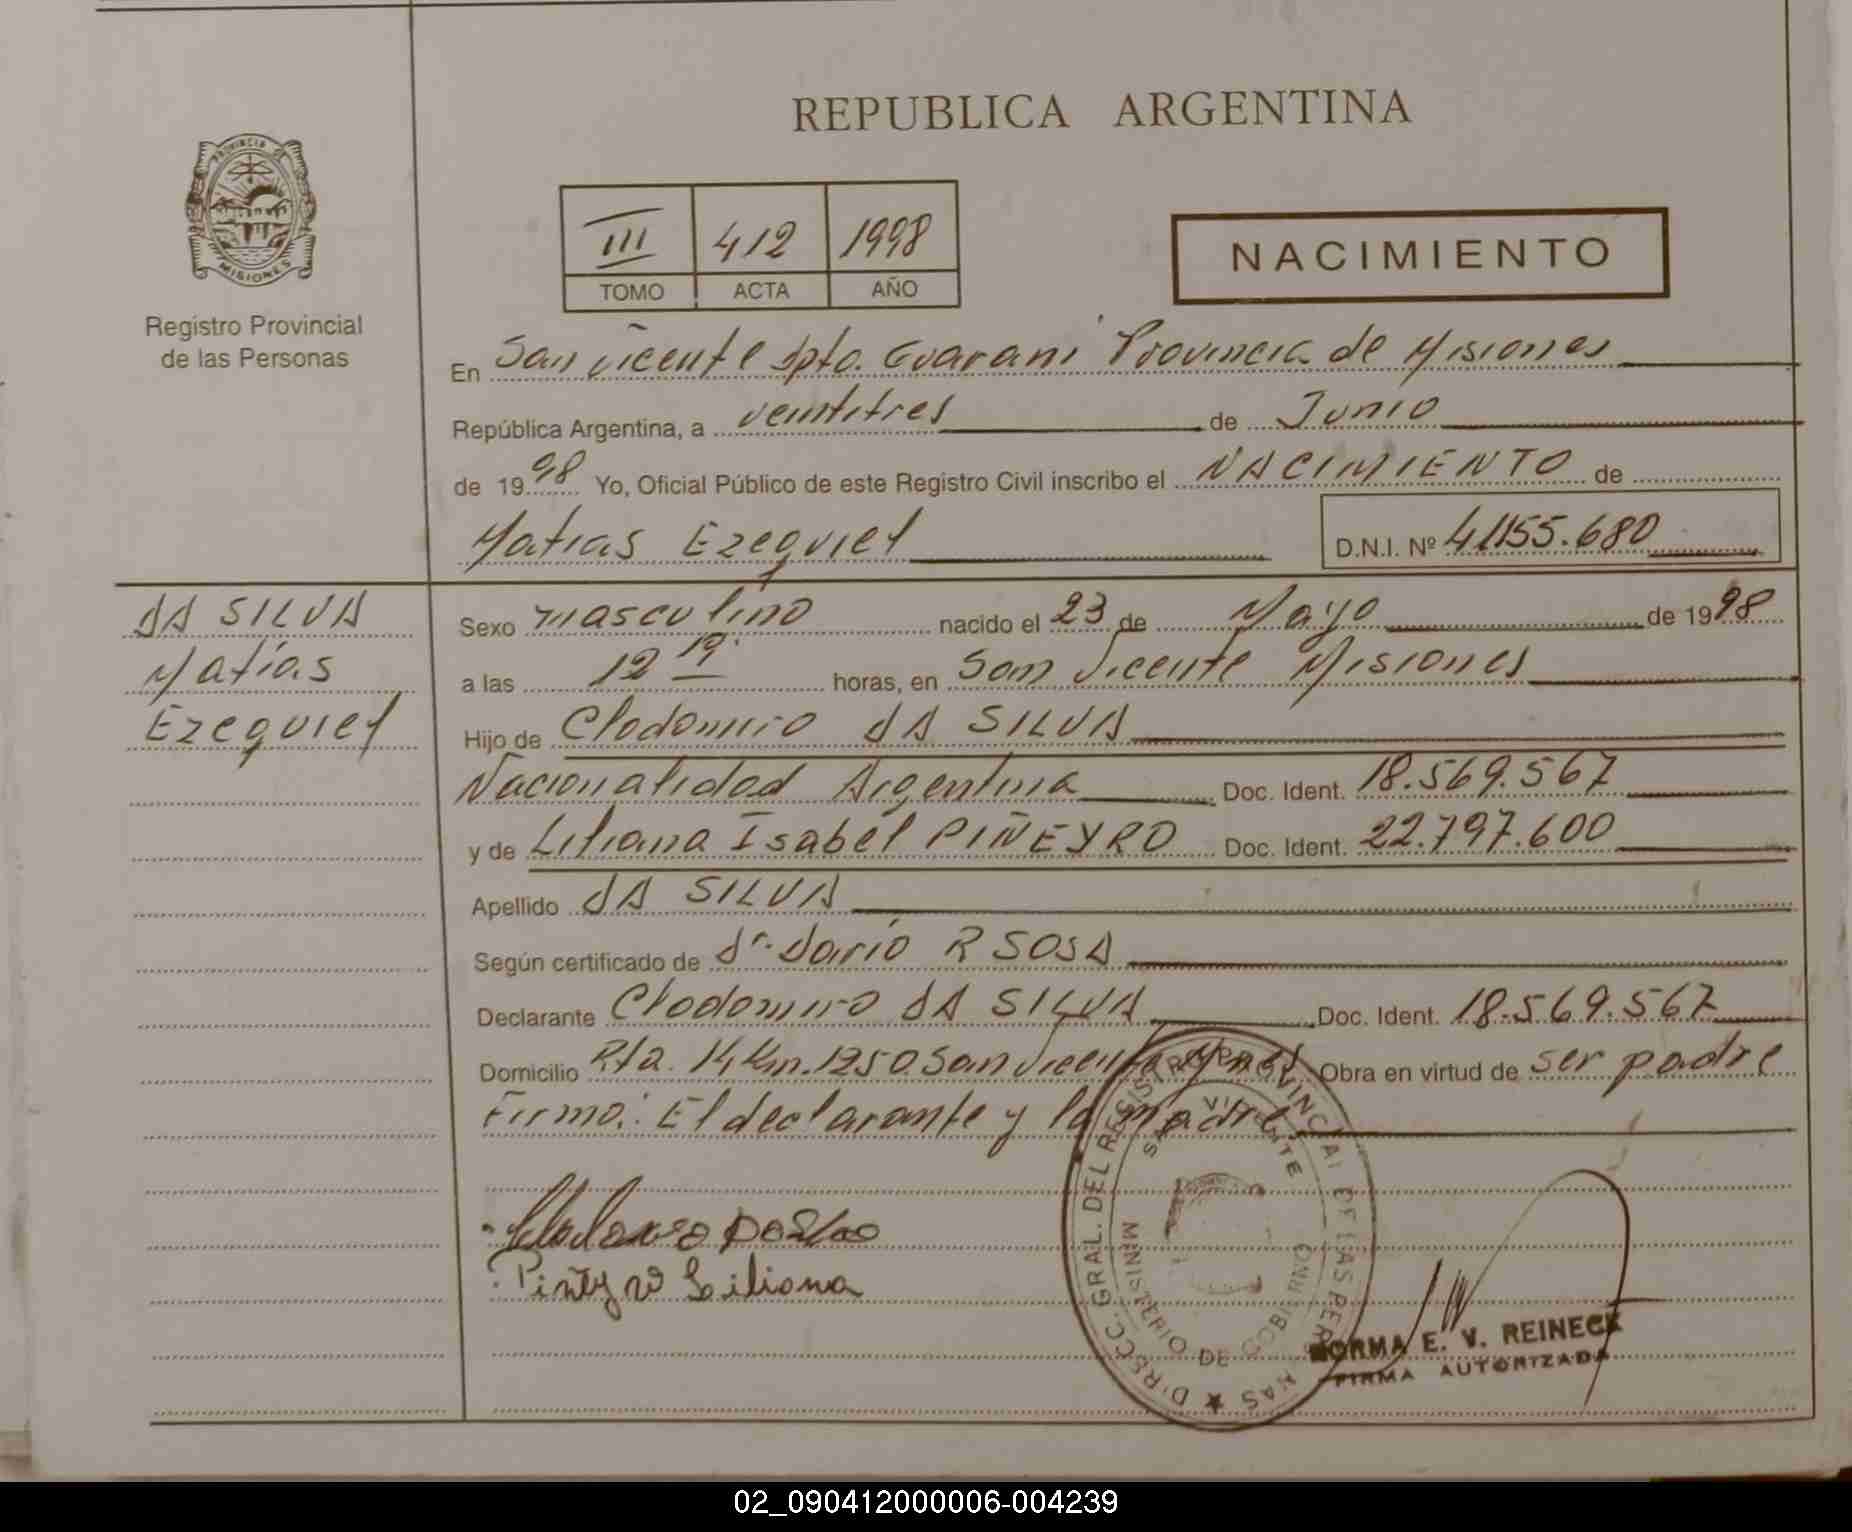 REPUBLICA ARGENTINA
PROVINCIA DE MISIONES
Registro Provincial
de las Personas
III 412 1998
TOMO ACTA AÑO
NACIMIENTO
En San Vicente Dpto. Guaraní Provincia de Misiones
República Argentina, a veintitres de Junio
de 1998 Yo, Oficial Público de este Registro Civil inscribo el NACIMIENTO de
Matias Ezequiel D.N.I. Nº 41.155.680
DA SILVA
Matías
Ezequiel
Sexo masculino nacido el 23 de Mayo de 1998
a las 12 19 horas, en San Vicente Misiones
Hijo de Clodomiro DA SILVA
Nacionalidad Argentina Doc. Ident. 18.569.567
y de Liliana Isabel PIÑEYRO Doc. Ident. 22.797.600
Apellido DA SILVA
Según certificado de Dr. Darío R SOSA
Declarante Clodomiro DA SILVA Doc. Ident. 18.569.567
Domicilio Rta. 14 Km. 1250 San Vicente Mnes Obra en virtud de ser padre
Firma: El declarante y la madre
Piñeyro Liliana
DIRECC. GRAL. DEL REGISTRO PROVINCIAL DE LAS PERSONAS
SAN VICENTE
MINISTERIO DE GOBIERNO
NORMA E. V. REINECK
FIRMA AUTORIZADA
02_090412000006-004239